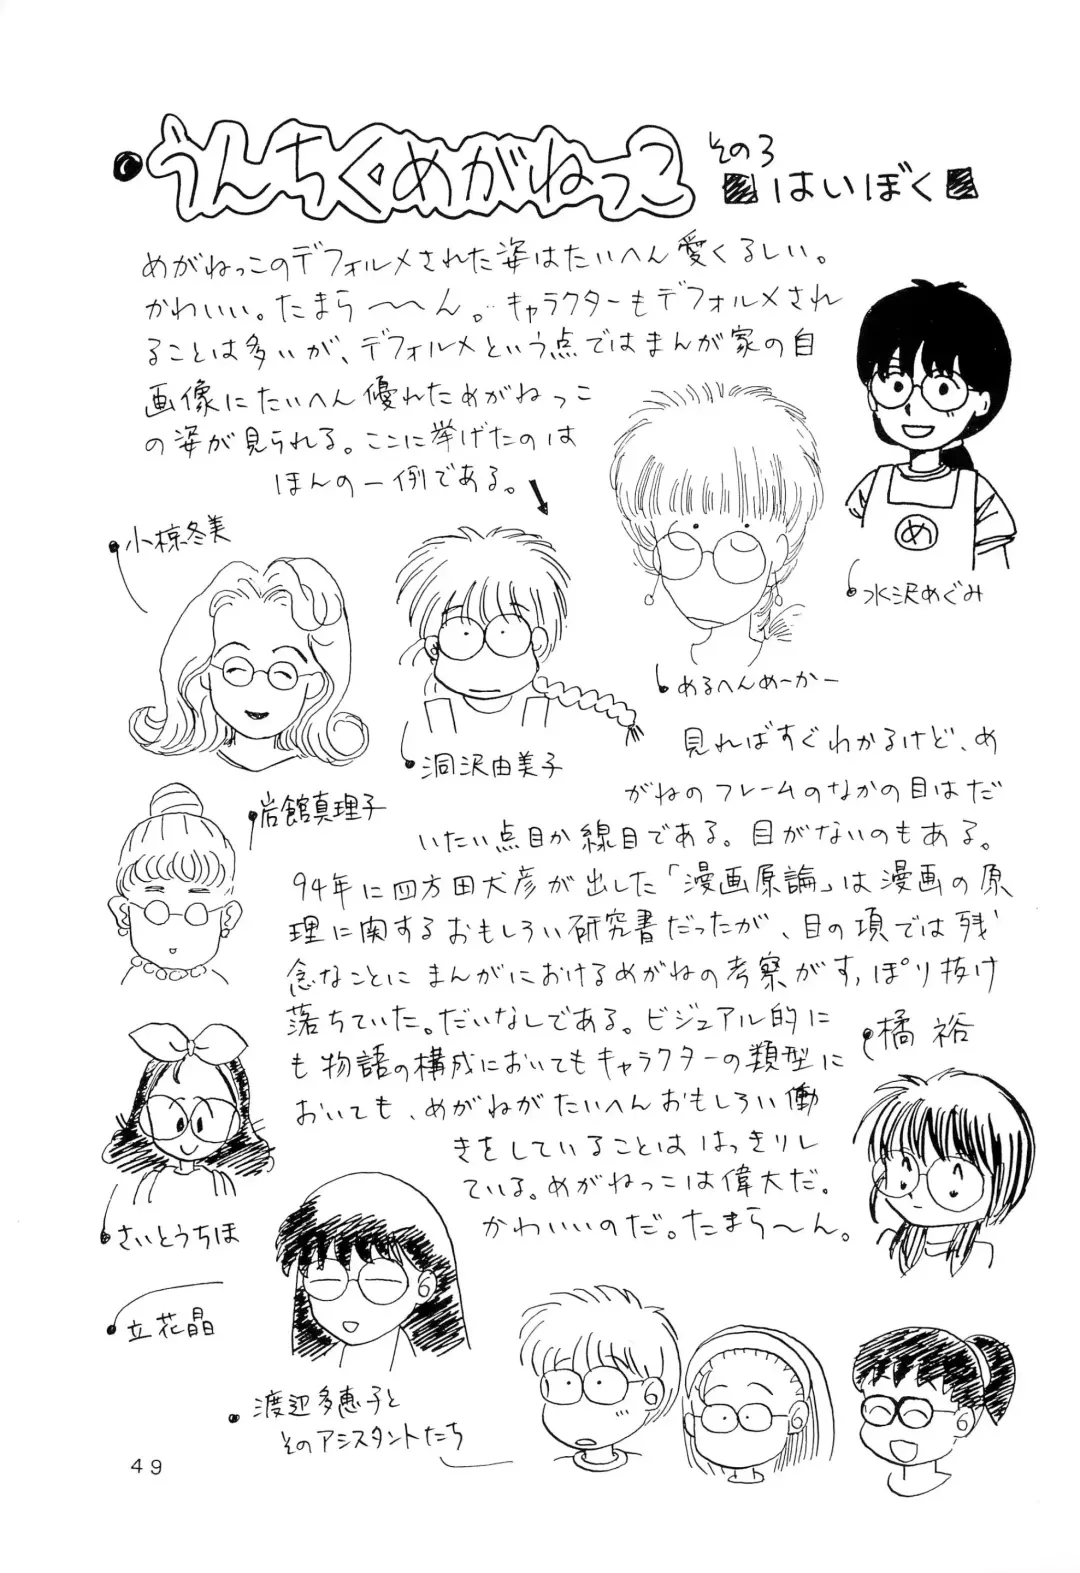 うんちくめがねっこ その3
はいぼく
めがねっこのデフォルメされた姿はたいへん愛くるしい。
かわいい。たまら〜〜ん。キャラクターもデフォルメされ
ることは多いが、デフォルメという点ではまんが家の自
画像にたいへん優れためがねっこ
の姿が見られる。ここに挙げたのは
ほんの一例である。
水沢めぐみ
小椋冬美
めるへんめーかー
洞沢由美子
岩館真理子
見ればすぐわかるけど、め
がねのフレームのなかの目はだ
いたい点目か線目である。目がないのもある。
94年に四方田犬彦が出した「漫画原論」は漫画の原
理に関するおもしろい研究書だったが、目の項では残
念なことにまんがにおけるめがねの考察がすっぽり抜け
落ちていた。だいなしである。ビジュアル的に
も物語の構成においてもキャラクターの類型に
おいても、めがねがたいへんおもしろい働
きをしていることははっきりし
ている。めがねっこは偉大だ。
かわいいのだ。たまら〜ん。
橘裕
さいとうちほ
立花晶
渡辺多恵子と
そのアシスタントたち
め
49